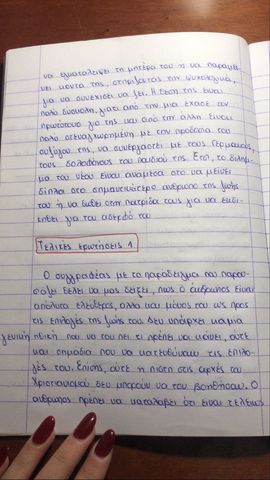 να εγκαταλείψει τη μητέρα του ή να παραμεί-
νει κοντά της, στηρίζοντας την ψυχολογικά,
για να συνεχίσει να ζει. Η θέση της είναι
πολύ δύσκολη, γιατί από την μια έχασε τον
πρωτότοκο γιο της και από την άλλη είναι
πολύ στεναχωρημένη με την προδοσία του
συζύγου της, να συνεργαστεί με τους Γερμανούς,
τους δολοφόνους του παιδιού της. Έτσι, το δίλημ-
μα του νέου είναι ανάμεσα στο να μείνει
δίπλα στο σημαντικότερο άνθρωπο της ζωής
του ή να δοθεί στην πατρίδα τους για να εκδι-
κηθεί για τον αδερφό του
Τελικές ερωτήσεις 1
Ο συγγραφέας με το παράδειγμα που παρου-
σιάζει θέλει να μας δείξει, πως ο άνθρωπος είναι
απόλυτα ελεύθερος, αλλά και μόνος του ως προς
τις επιλογές της ζωής του. Δεν υπάρχει καμία
γενική ηθική που να του πει τι πρέπει να κάνει, ούτε
και σημάδια που να κατευθύνουν τις επιλο-
γές του. Επίσης, ούτε η πίστη στις αρχές του
Χριστιανισμού δεν μπορούν να τον βοηθήσουν. Ο
άνθρωπος πρέπει να καταλάβει ότι είναι τελείως